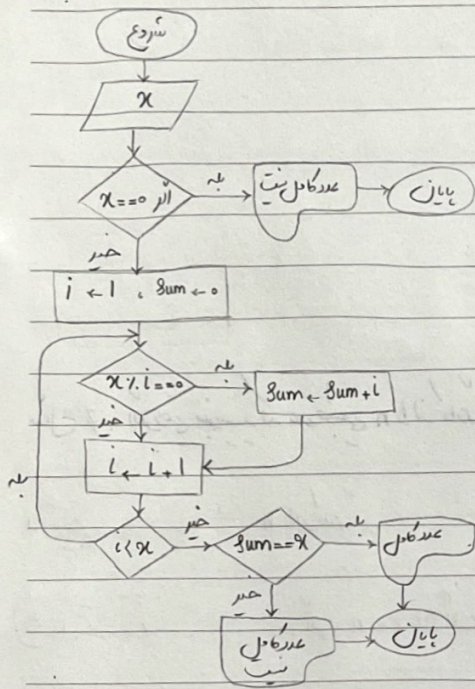 شروع
x
اگر x==0
بله
عدد کامل نیست
پایان
خیر
i ← 1 , Sum ← 0
x % i == 0
بله
Sum ← Sum + i
خیر
i ← i + 1
بله
i < x
خیر
Sum == x
بله
عدد کامل
خیر
عدد کامل
نیست
پایان